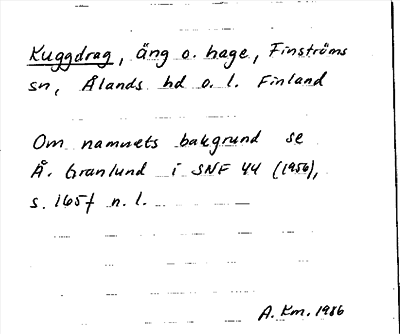 Kuggdrag, äng o. hage, Finströms
sn, Ålands hd o. l. Finland
Om namnets bakgrund se
Å. Granlund i SNF 44 (1956),
s. 165f n. l.
A. Km. 1986